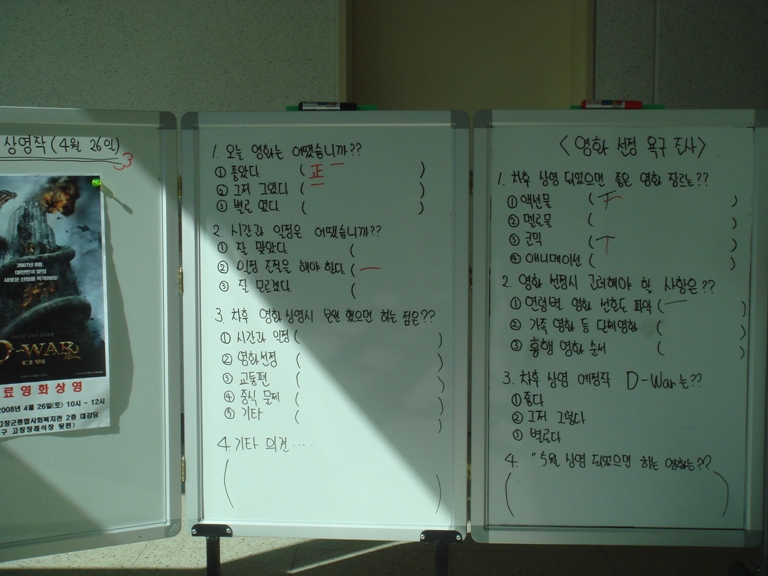 상영작 (4월 26일)
2007년 8월,
대한민국 못의
새로운 신화를 목격하라!
D-WAR
디 워
료영화상영
2008년 4월 26일(토) 10시 ~ 12시
고창군종합사회복지관 2층 대강당
구 고창장례식장 뒷편)
1. 오늘 영화는 어땠습니까??
① 좋았다 ( 正 )
② 그저 그랬다 ( )
③ 별로 였다 ( )
2. 시간과 일정은 어땠습니까??
① 잘 맞았다 (
② 일정 조절을 해야 한다. ( 一
③ 잘 모르겠다 (
3. 차후 영화 상영시 보완 했으면 하는 점은??
① 시간과 일정 ( )
② 영화선정 ( )
③ 교통편 ( )
④ 중식 문제 ( )
⑤ 기타 ( )
4. 기타 의견 ....
( )
< 영화 선정 욕구 조사 >
1. 차후 상영 되었으면 좋은 영화 장르는??
① 액션물 ( )
② 멜로물 ( )
③ 코믹 ( 丅 )
④ 애니메이션 ( )
2. 영화 선정시 고려해야 할 사항은??
① 연령별 영화 선호도 파악 ( 一 )
② 가족 영화 등 단체영화 ( )
③ 흥행 영화 순서 ( )
3. 차후 상영 예정작 D-War는??
① 좋다
② 그저 그렇다
③ 별로다
4. "5월 상영 되었으면 하는 영화는??
( )